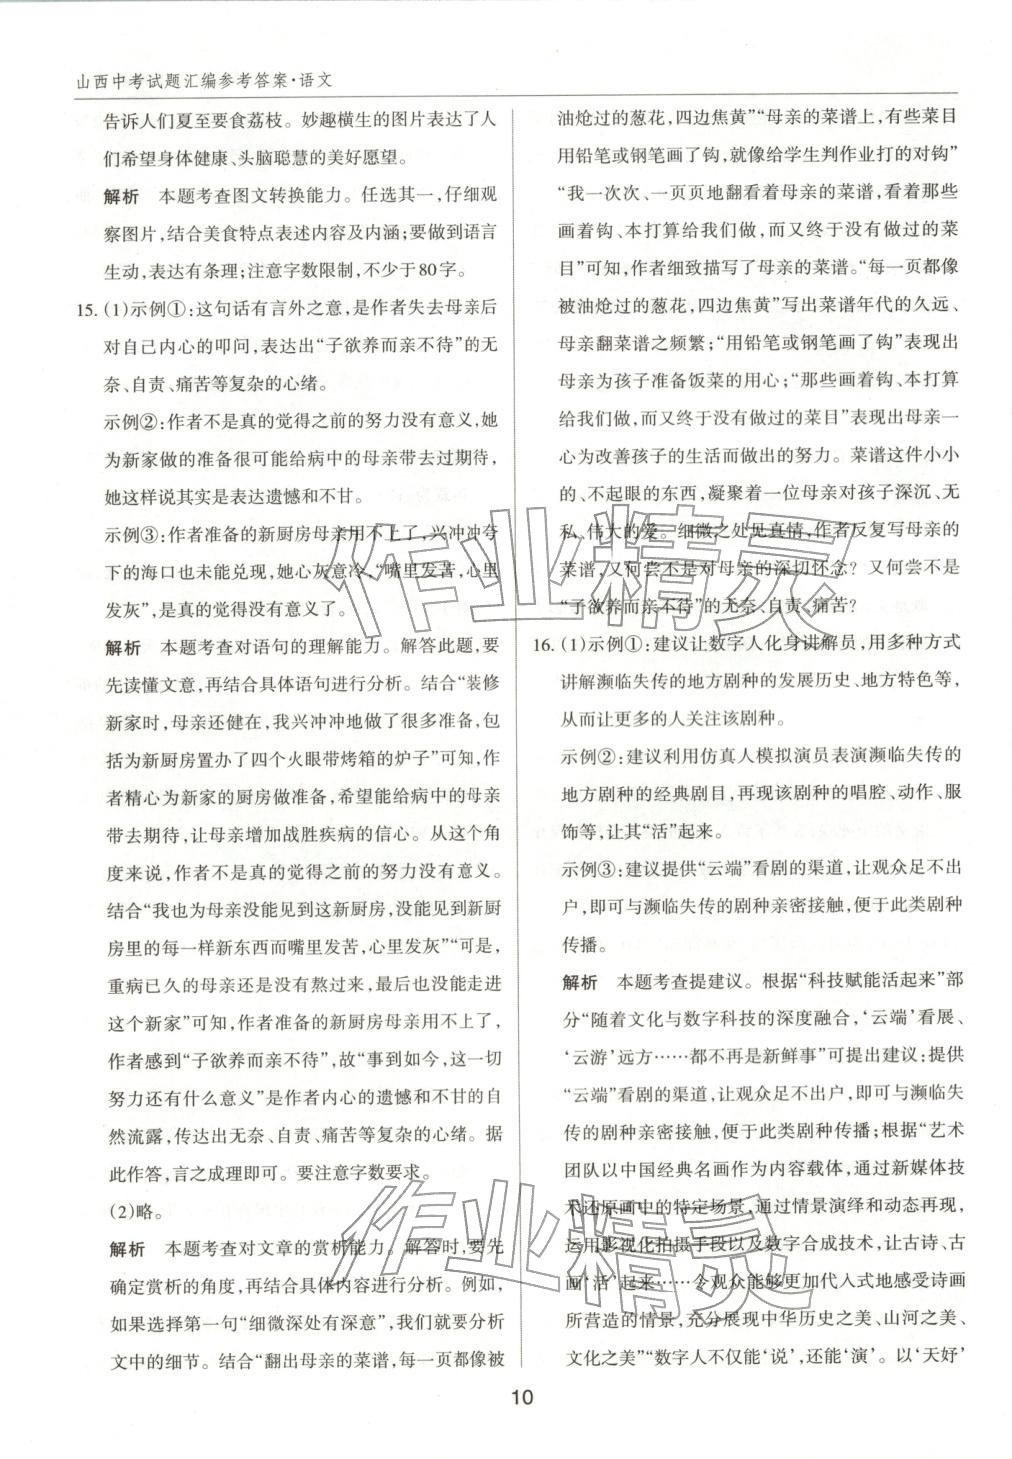 山西中考试题汇编参考答案·语文
告诉人们夏至要食荔枝。妙趣横生的图片表达了人
们希望身体健康、头脑聪慧的美好愿望。
解析　本题考查图文转换能力。任选其一,仔细观
察图片,结合美食特点表述内容及内涵;要做到语言
生动,表达有条理;注意字数限制,不少于80字。
15.(1)示例①:这句话有言外之意,是作者失去母亲后
对自己内心的叩问,表达出“子欲养而亲不待”的无
奈、自责、痛苦等复杂的心绪。
示例②:作者不是真的觉得之前的努力没有意义,她
为新家做的准备很可能给病中的母亲带去过期待,
她这样说其实是表达遗憾和不甘。
示例③:作者准备的新厨房母亲用不上了,兴冲冲夸
下的海口也未能兑现,她心灰意冷,“嘴里发苦,心里
发灰”,是真的觉得没有意义了。
解析　本题考查对语句的理解能力。解答此题,要
先读懂文意,再结合具体语句进行分析。结合“装修
新家时,母亲还健在,我兴冲冲地做了很多准备,包
括为新厨房置办了四个火眼带烤箱的炉子”可知,作
者精心为新家的厨房做准备,希望能给病中的母亲
带去期待,让母亲增加战胜疾病的信心。从这个角
度来说,作者不是真的觉得之前的努力没有意义。
结合“我也为母亲没能见到这新厨房,没能见到新厨
房里的每一样新东西而嘴里发苦,心里发灰”“可是,
重病已久的母亲还是没有熬过来,也没能走进
这个新家”可知,作者准备的新厨房母亲用不上了,
作者感到“子欲养而亲不待”,故“事到如今,这一切
努力还有什么意义”是作者内心的遗憾和不甘的自
然流露,传达出无奈、自责、痛苦等复杂的心绪。据
此作答,言之成理即可。要注意字数要求。
(2)略。
解析　本题考查对文章的赏析能力。解答时,要先
确定赏析的角度,再结合具体内容进行分析。例如,
如果选择第一句“细微深处有深意”,我们就要分析
文中的细节。结合“翻出母亲的菜谱,每一页都像被
油炝过的葱花,四边焦黄”“母亲的菜谱上,有些菜目
用铅笔或钢笔画了钩,就像给学生判作业打的对钩”
“我一次次、一页页地翻看着母亲的菜谱,看着那些
画着钩、本打算给我们做,而又终于没有做过的菜
目”可知,作者细致描写了母亲的菜谱。“每一页都像
被油炝过的葱花,四边焦黄”写出菜谱年代的久远、
母亲翻菜谱之频繁;“用铅笔或钢笔画了钩”表现出
母亲为孩子准备饭菜的用心;“那些画着钩、本打算
给我们做,而又终于没有做过的菜目”表现出母亲一
心为改善孩子的生活而做出的努力。菜谱这件小小
的、不起眼的东西,凝聚着一位母亲对孩子深沉、无
私、伟大的爱。细微之处见真情,作者反复写母亲的
菜谱,又何尝不是对母亲的深切怀念？又何尝不是
“子欲养而亲不待”的无奈、自责、痛苦?
16.(1)示例①:建议让数字人化身讲解员,用多种方式
讲解濒临失传的地方剧种的发展历史、地方特色等,
从而让更多的人关注该剧种。
示例②:建议利用仿真人模拟演员表演濒临失传的
地方剧种的经典剧目,再现该剧种的唱腔、动作、服
饰等,让其“活”起来。
示例③:建议提供“云端”看剧的渠道,让观众足不出
户,即可与濒临失传的剧种亲密接触,便于此类剧种
传播。
解析　本题考查提建议。根据“科技赋能活起来”部
分“随着文化与数字科技的深度融合,‘云端’看展、
‘云游’远方……都不再是新鲜事”可提出建议:提供
“云端”看剧的渠道,让观众足不出户,即可与濒临失
传的剧种亲密接触,便于此类剧种传播;根据“艺术
团队以中国经典名画作为内容载体,通过新媒体技
术还原画中的特定场景,通过情景演绎和动态再现,
运用影视化拍摄手段以及数字合成技术,让古诗、古
画‘活’起来……令观众能够更加代入式地感受诗画
所营造的情景,充分展现中华历史之美、山河之美、
文化之美”“数字人不仅能‘说’,还能‘演’。以‘天妤’
10
作业精灵
作业精灵